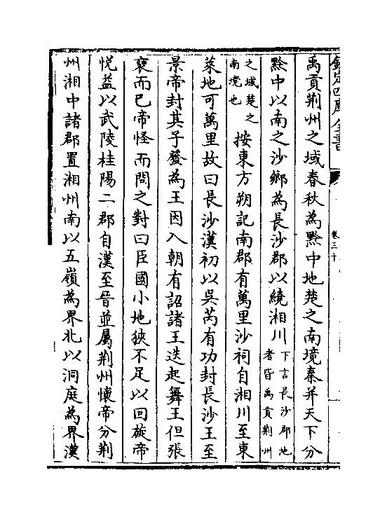 欽定四庫全書
卷三十
禹貢荆州之域春秋為黔中地楚之南境秦并天下分
黔中以南之沙鄉為長沙郡以統湘川下言長沙郡地者皆禹貢荆州
之域楚之南境也 按東方朔記南郡有萬里沙祠自湘川至東
萊地可萬里故曰長沙漢初以吳芮有功封長沙王至
景帝封其子發為王因入朝有詔諸王迭起舞王但張
褎而已帝怪而問之對曰臣國小地狹不足以回旋帝
悦益以武陵桂陽二郡自漢至晉並屬荆州懷帝分荆
州湘中諸郡置湘州南以五嶺為界北以洞庭為界漢